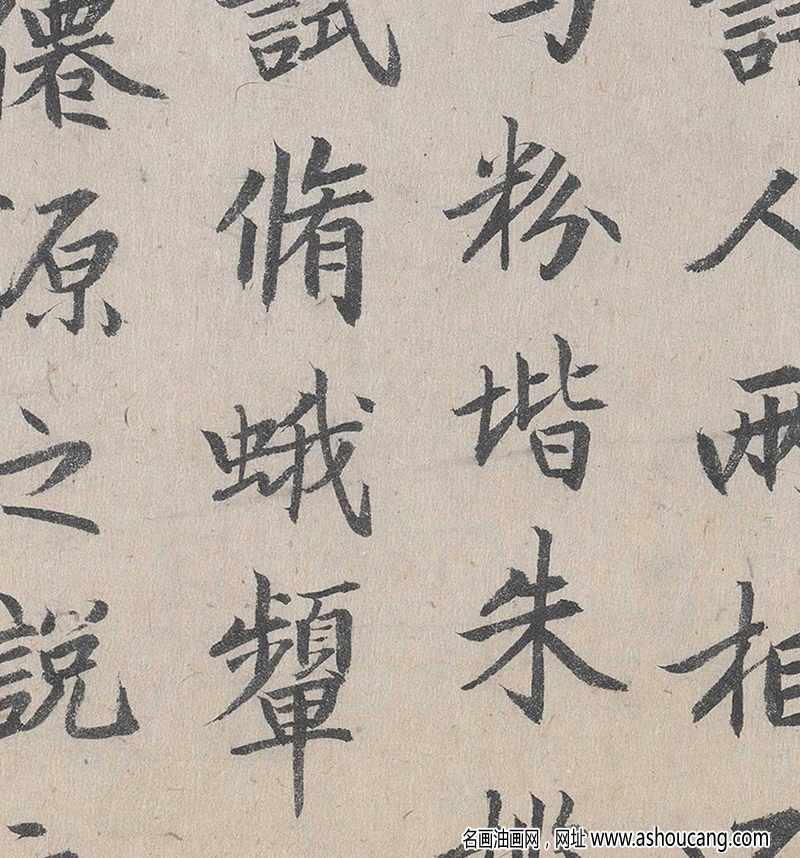 人兩相
粉堦朱
試脩蛾顰
僊源之說
名画油画网，网址 www.ashoucang.com